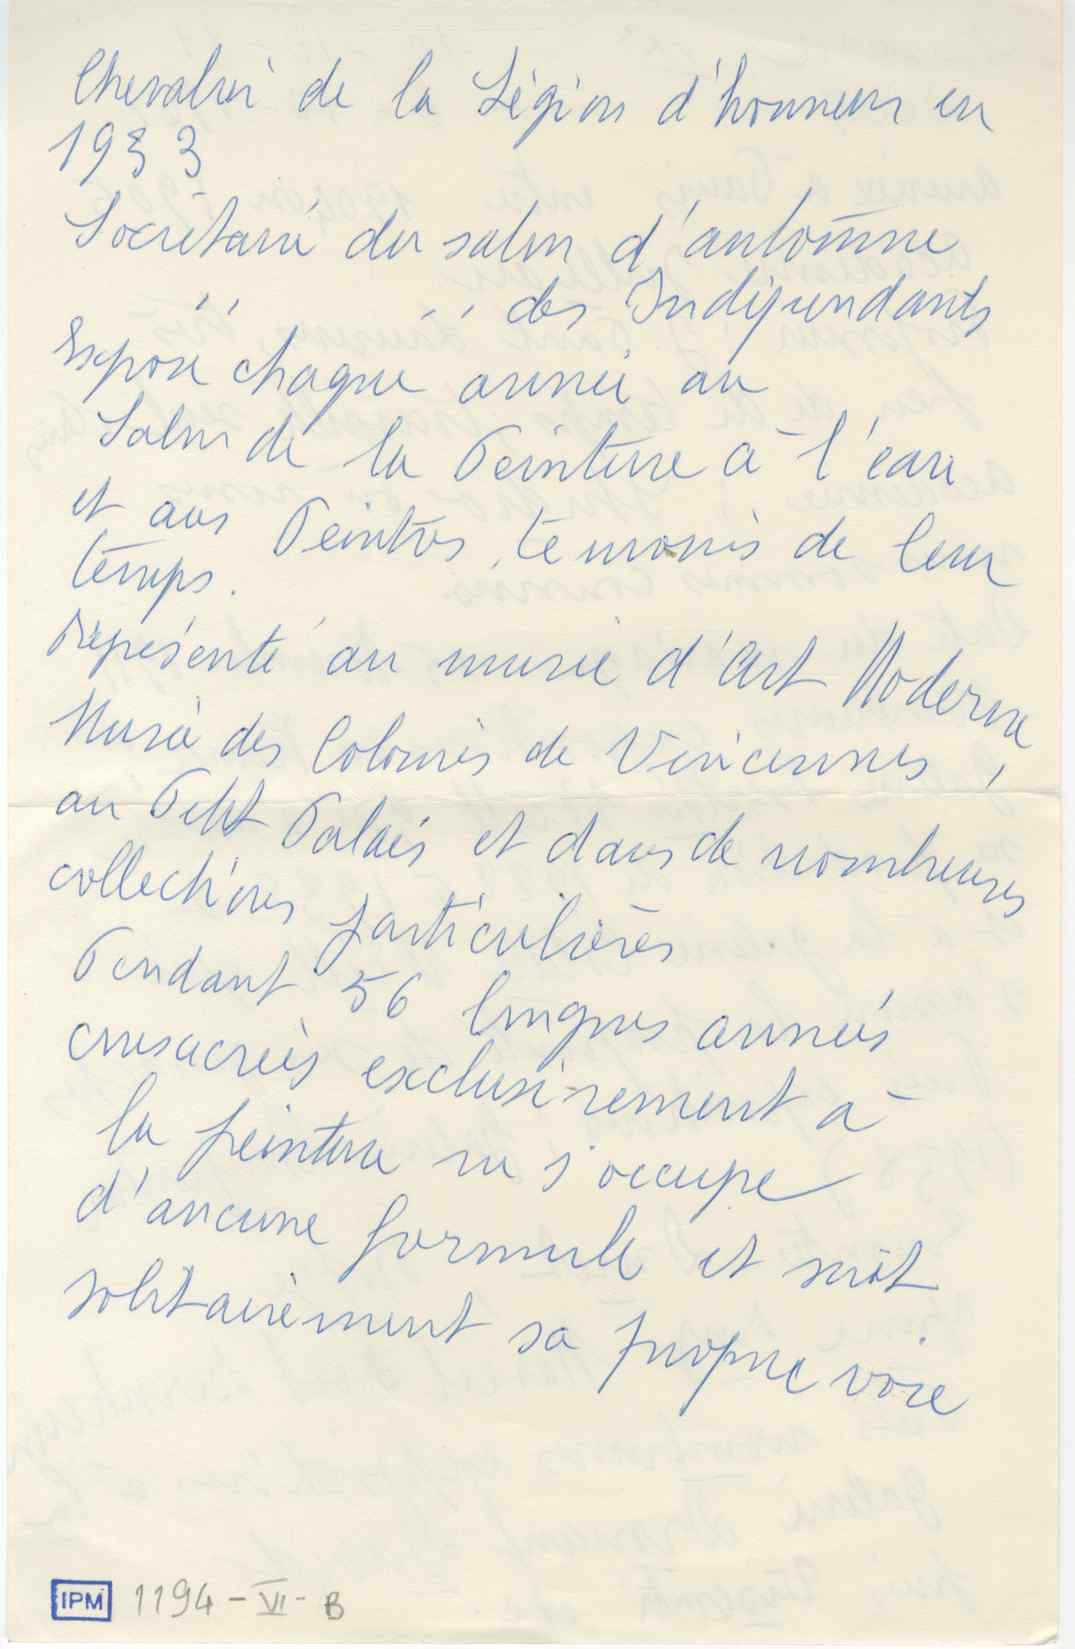 Chevalier de la Légion d'honneur en
1933
Sociétaire du salon d'automne
" " des Indépendants
Expose chaque année au
Salon de la Peinture à l'eau
et aux Peintres témoins de leur
temps.
Représenté au musée d'Art Moderne
Musée des Colonies de Vincennes,
au Petit Palais et dans de nombreuses
collections particulières
Pendant 56 longues années
consacrées exclusivement à
la peinture ne s'occupe
d'aucune formule et suit
solitairement sa propre voie
IPM 1194-VI-B